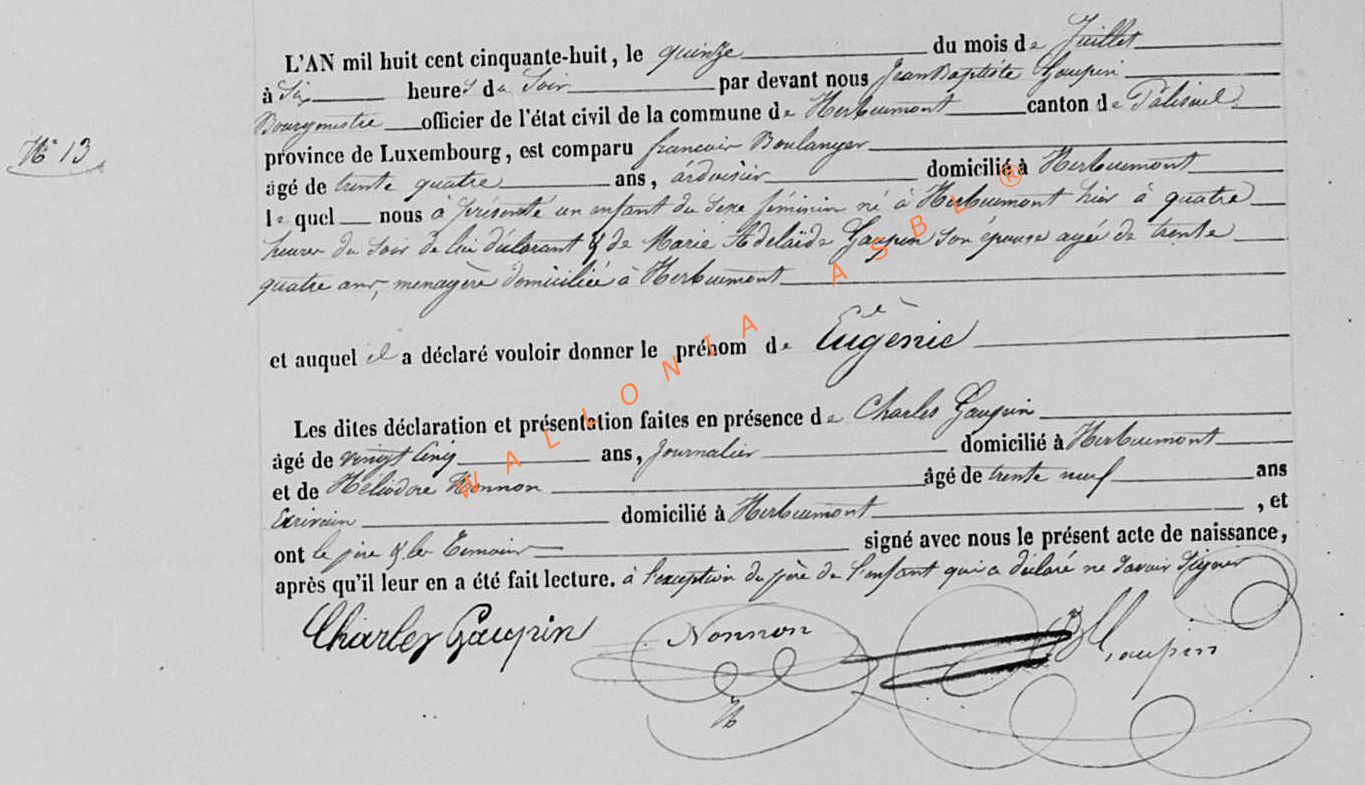 L'AN mil huit cent cinquante-huit, le quinze du mois de Juillet
à Six heures du Soir par devant nous Jean Baptiste Gaupin
Bourgmestre officier de l'état civil de la commune de Herbeumont canton de Paliseul
N° 13
province de Luxembourg, est comparu francois Boulanger
âgé de trente quatre ans, ardoisier domicilié à Herbeumont
le quel nous a présenté un enfant du sexe féminin né à Herbeumont hier à quatre
heures du soir de lui déclarant & de Marie Adelaïde Gaupin son épouse agée de trente
quatre ans, menagère domiciliée à Herbeumont
et auquel il a déclaré vouloir donner le prénom de Eugènie
Les dites déclaration et présentation faites en présence de Charles Gaupin
âgé de vingt cinq ans, Journalier domicilié à Herbeumont
et de Héliodore Nonnon âgé de trente neuf ans
Ecrivain domicilié à Herbeumont, et
ont le père & les Temoins signé avec nous le présent acte de naissance,
après qu'il leur en a été fait lecture. à l'exception du père de l'enfant qui a déclaré ne savoir Signer
Charles Gaupin Nonnon Gaupin
WALLONIA ASBL ®